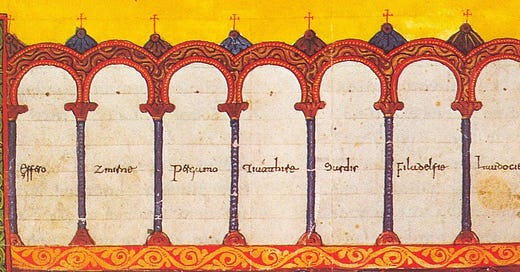 effeso
zmirne
pergamo
tiathire
sardis
filadelfie
laudocie